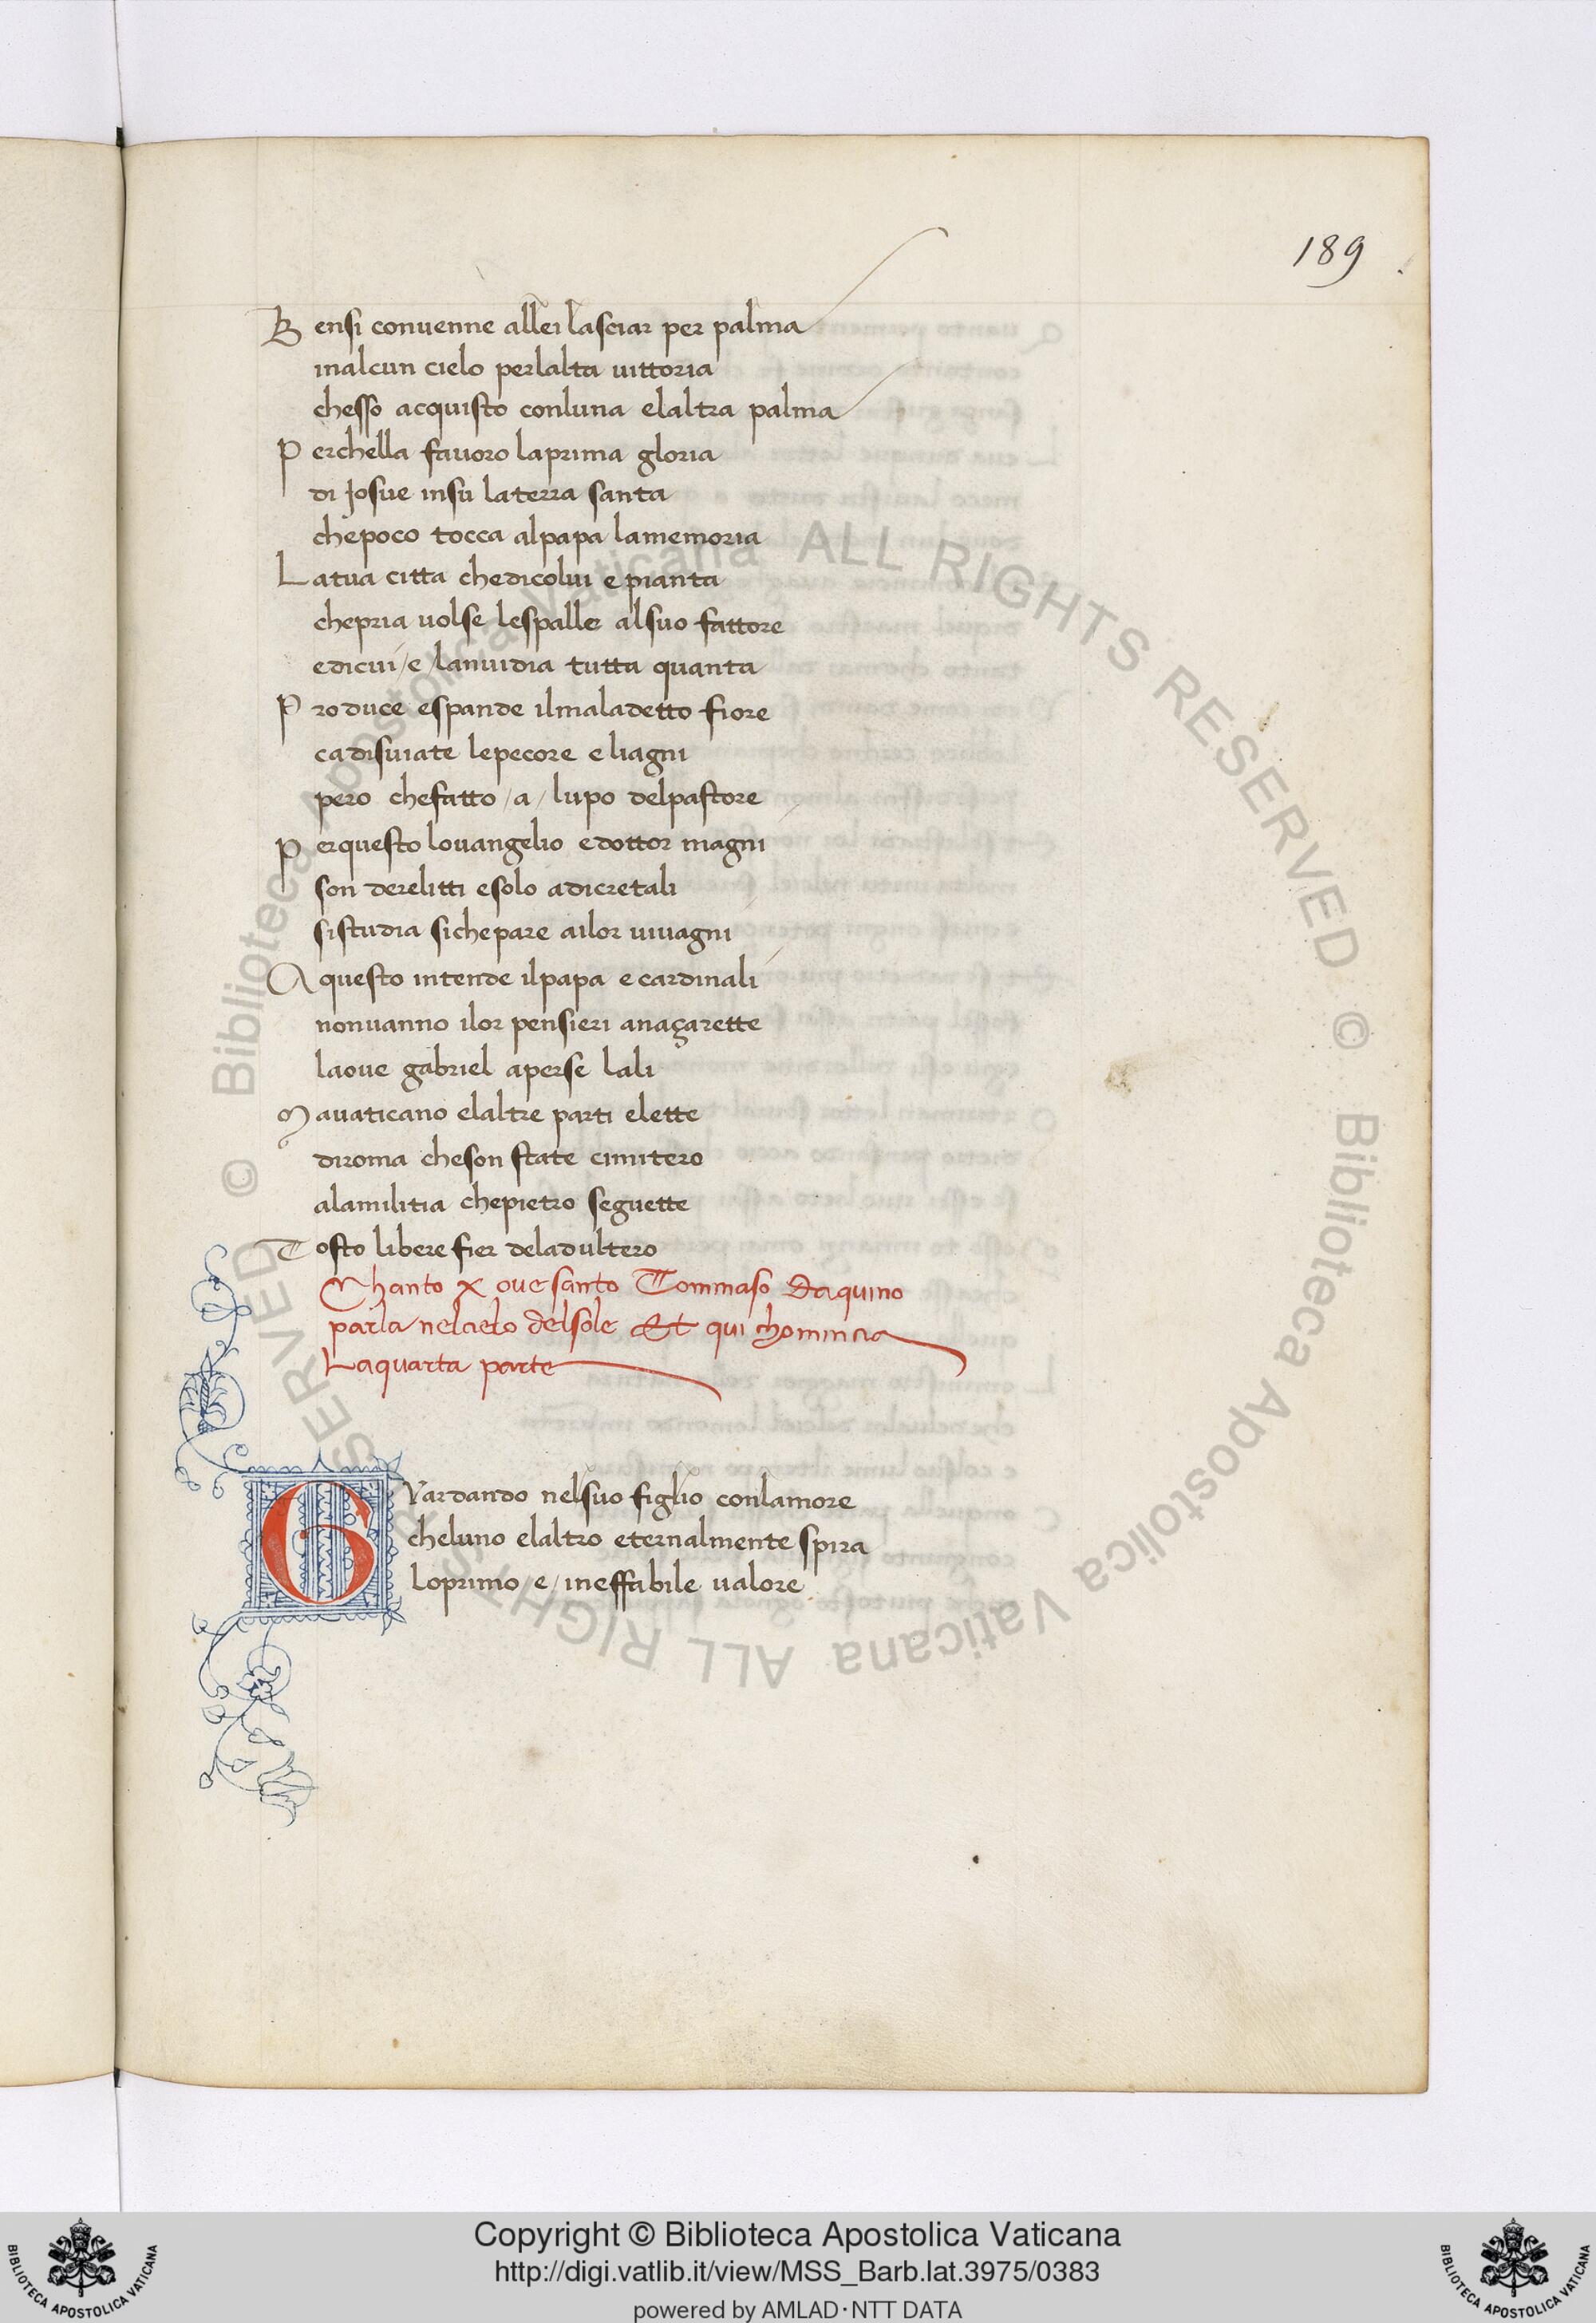 189
Bensi convenne allei lasciar per palma
inalcun cielo perlalta vittoria
chesso acquisto conluna elaltra palma
Perchella favoro laprima gloria
di Josue insu laterra santa
chepoco tocca alpapa lamemoria
Latua citta chedicolui e pianta
chepria volse lespalle alsuo fattore
edicui / e / lanvidia tutta quanta
Produce espande ilmaladetto fiore
cadisviate lepecore eliagni
pero chefatto / a / lupo delpastore
Perquesto lovangelio edottor magni
son derelitti esolo adicretali
sistudia sichepare ailor vivagni
Aquesto intende ilpapa ecardinali
nonvanno ilor pensieri anaçarette
laove gabriel aperse lali
Mavaticano elaltre parti elette
diroma cheson state cimitero
alamilitia chepietro seguette
Tosto libere fier deladultero
Chanto x ove santo Tommaso Daquino
parla nelcielo delsole Et qui chomincia
Laquarta parte
GVardando nelsuo figlio conlamore
cheluno elaltro eternalmente spira
loprimo e / ineffabile valore
© Biblioteca Apostolica Vaticana ALL RIGHTS RESERVED © Biblioteca Apostolica Vaticana ALL RIGHTS RESERVED
Copyright © Biblioteca Apostolica Vaticana
http://digi.vatlib.it/view/MSS_Barb.lat.3975/0383
powered by AMLAD·NTT DATA
BIBLIOTECA APOSTOLICA VATICANA
BIBLIOTECA APOSTOLICA VATICANA